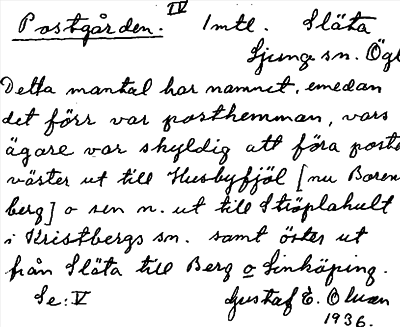 IV
Postgården. 1 mtl. Släta
Ljungs sn. Ögl
Detta mantal har namnet, emedan
det förr var posthemman, vars
ägare var skyldig att föra poste
väster ut till Husbyfjöl [nu Boren
berg] o sen n. ut till Ströplahult
i Kristbergs sn. samt öster ut
från Släta till Berg o Linköping.
Se: V Gustaf E. Olsson
1936.